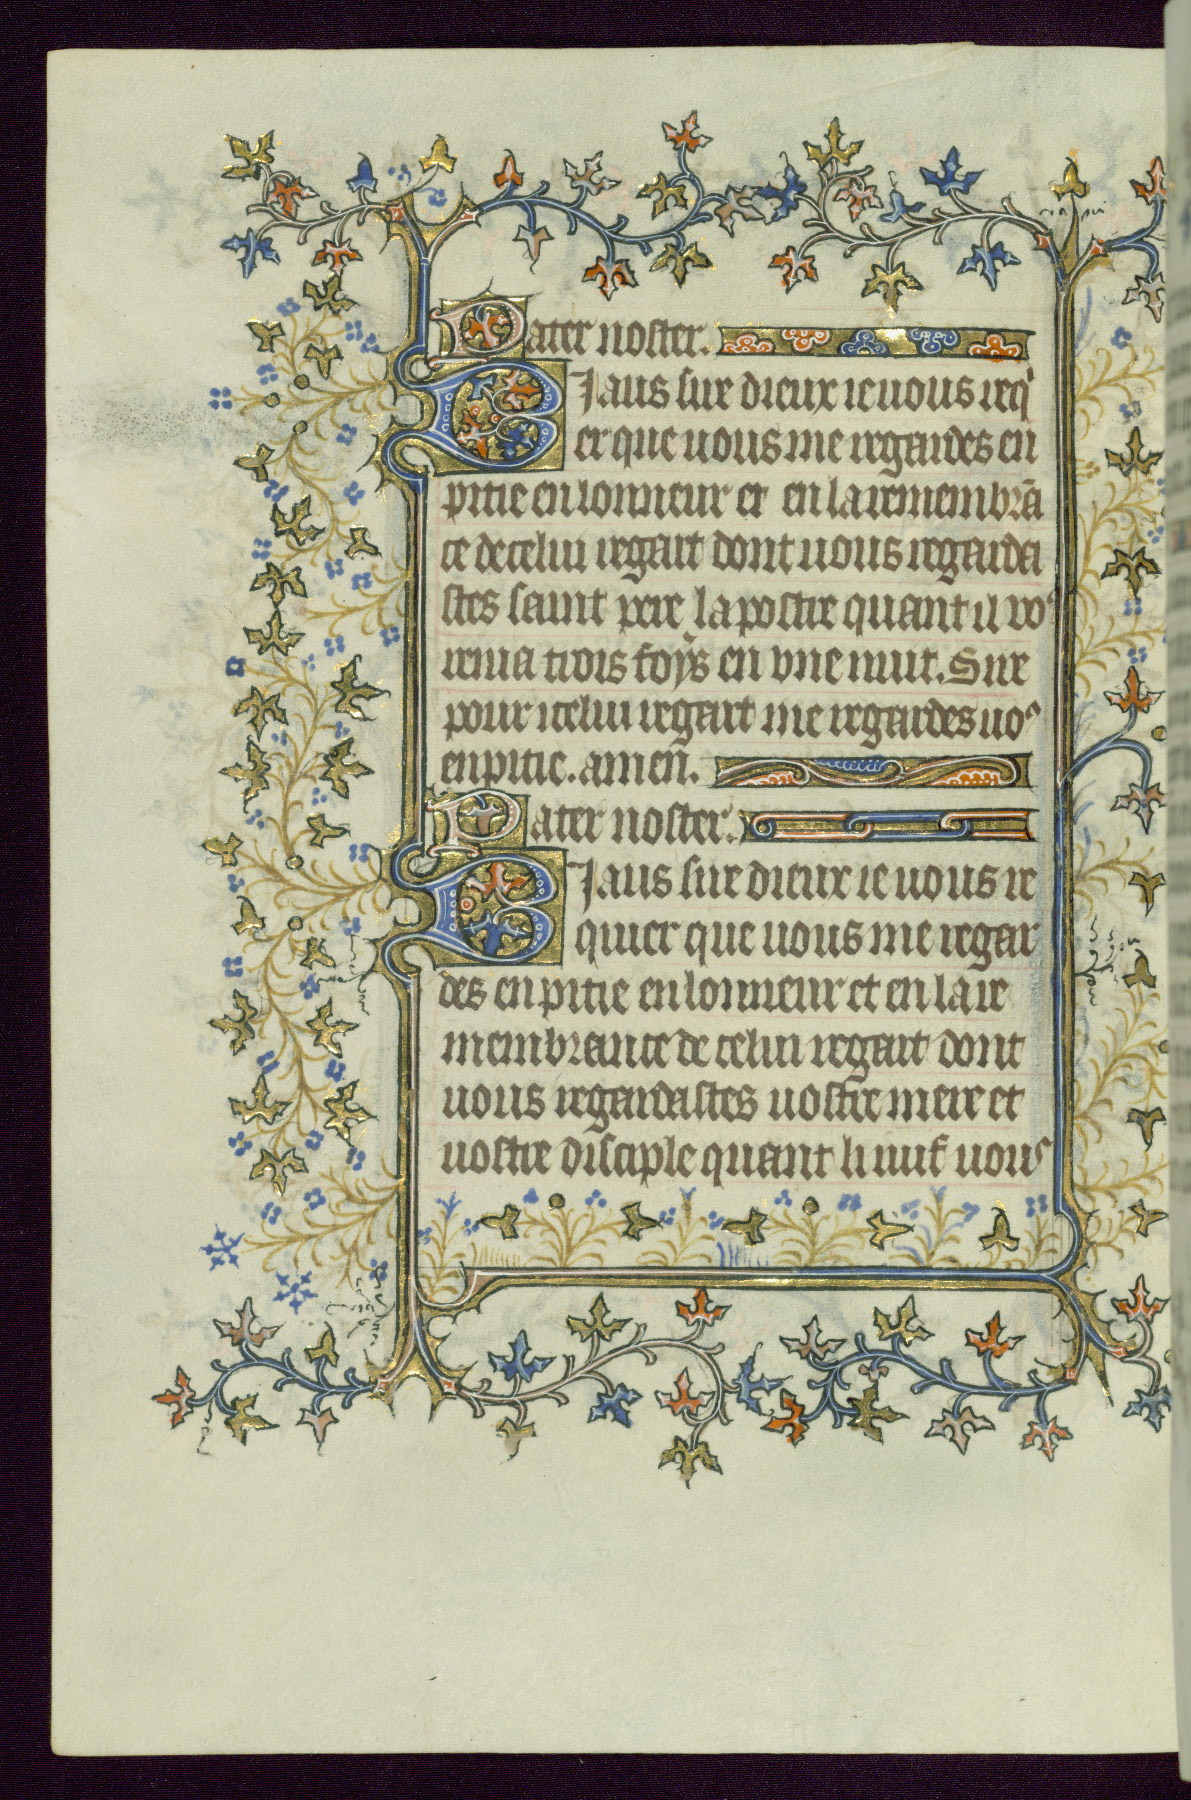 Pater noster.
Biaus sire dieux ie vous req'
er que vous me regardes en
pitie en lonneur et en la remembrā
ce de celui regart dont vous regarda
stes saint pere lapostre quant il vo⁹
renia trois foys en vne nuit. Sire
pour icelui regart me regardes vo⁹
en pitie. amen.
Pater noster.
Biaus sire dieux ie vous re
quier que vous me regar
des en pitie en lonneur et en la re
membrance de celui regart dont
vous regardastes vostre mere et
vostre disciple quant li iuif vous